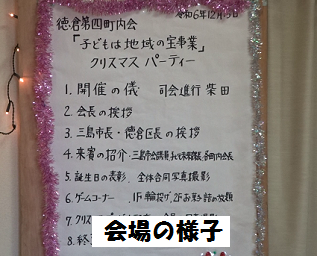 令和6年12月
徳倉第四町内会
「子どもは地域の宝事業」
クリスマス パーティー
1. 開催の儀 司会進行 柴田
2. 会長の挨拶
3. 三島市長・徳倉区長の挨拶
4. 来賓の紹介 三島市会議員 各町内会長
5. 誕生日の表彰、全体合同写真撮影
6. ゲームコーナー 1F 輪投げ、2F お菓子詰め放題
7. クリス
8. 終
会場の様子